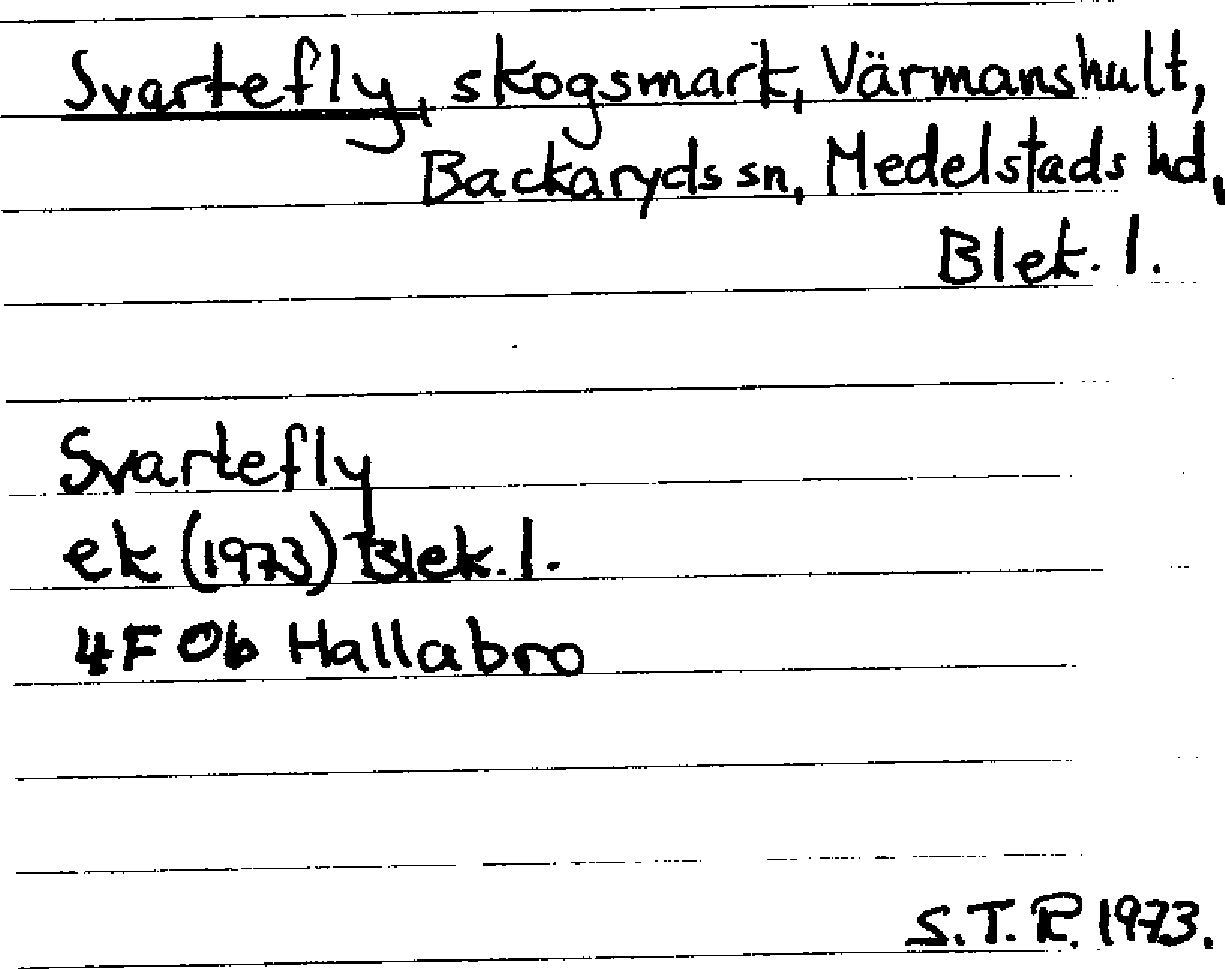 Svartefly, skogsmark, Värmanshult,
Backaryds sn, Medelstads hd,
Blek. l.
Svartefly
ek (1973) Blek. l.
4F 0b Hallabro
S.T.R. 1973.